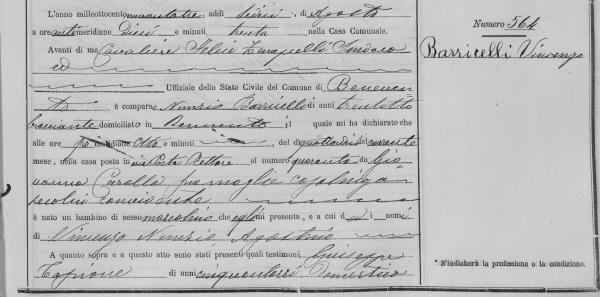 L'anno milleottocentonovantatre, addì sedici di Agosto
a ore antemeridiane Dieci e minuti trenta nella Casa Comunale.
Avanti di me Cavaliere Felice Sindaco
ed
Uffiziale dello Stato Civile del Comune di Beneven
to
è comparso Nunzio Barricelli di anni trentotto
domiciliato in Benevento il quale mi ha dichiarato che
alle ore meridiane otto e minuti , del dì quattordici del corrente
mese, nella casa posta in via Porta Rettore al numero quaranta da Gio
vanna Carolla sua moglie casalinga
seco lui convivente
è nato un bambino di sesso mascolino che egli mi presenta, e a cui dà i nomi
di Vincenzo Nunzio Agostino
A quanto sopra e a questo atto sono stati presenti quali testimoni Giuseppe
di anni Domestico
Numero 564
Barricelli Vincenzo
* S'indicherà la professione o la condizione.